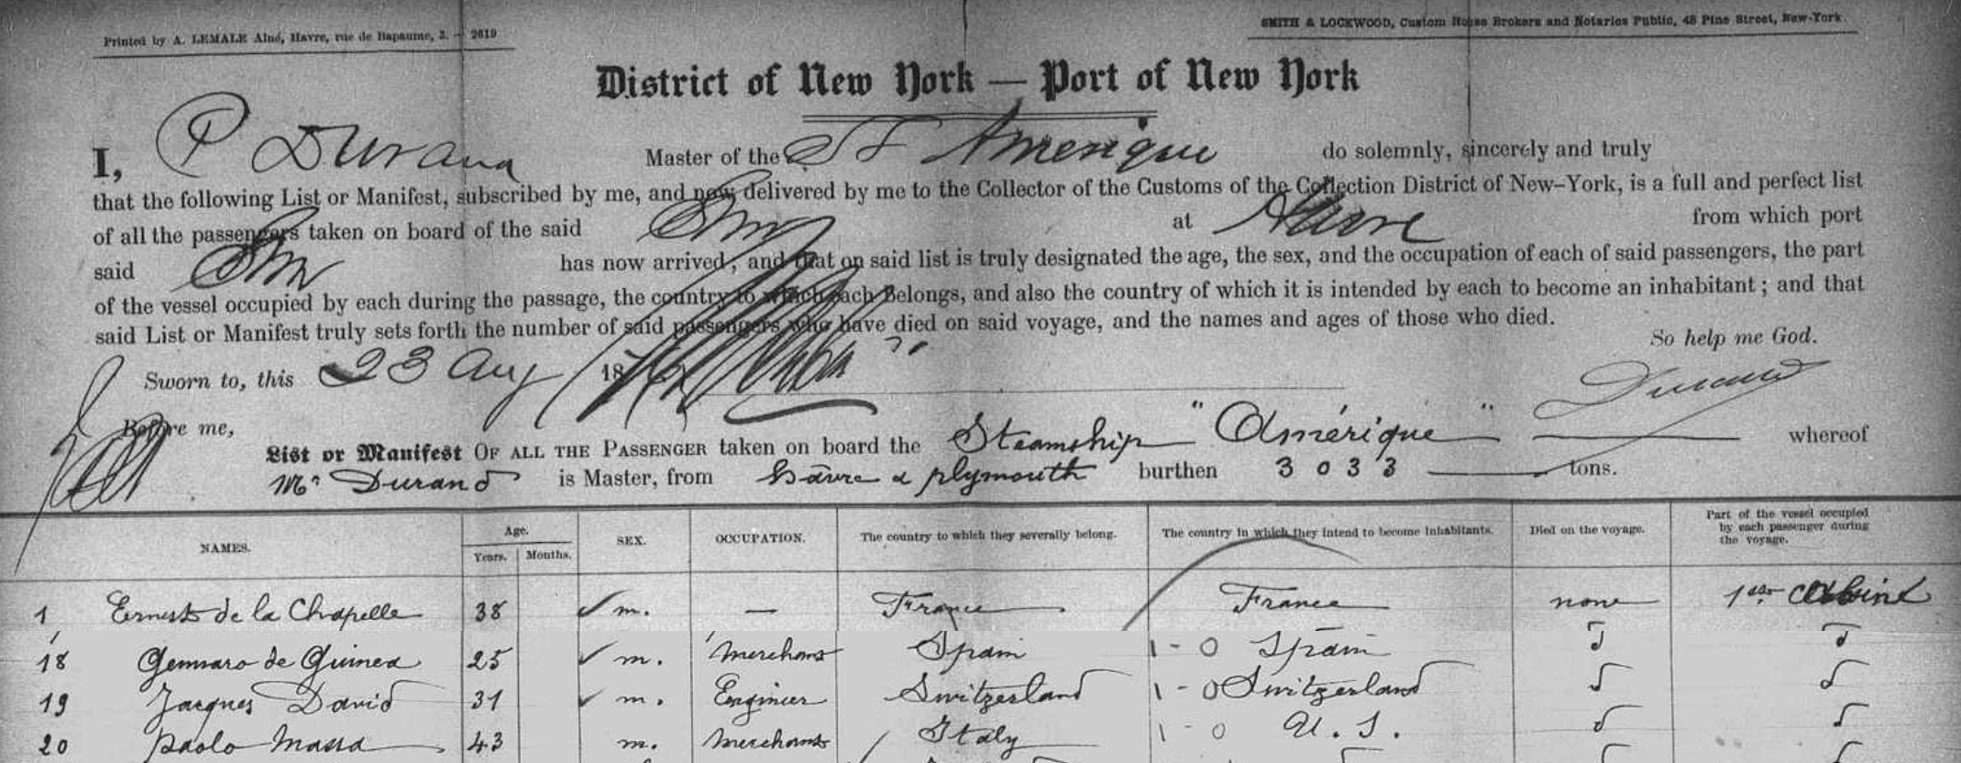 Printed by A. LEMALE Aîné, Havre, rue de Bapaume, 3. — 2619
SMITH & LOCKWOOD, Custom House Brokers and Notaries Public, 48 Pine Street, New-York.
District of New York — Port of New York
I, P Durand Master of the St Amerique do solemnly, sincerely and truly
that the following List or Manifest, subscribed by me, and now delivered by me to the Collector of the Customs of the Collection District of New-York, is a full and perfect list
of all the passengers taken on board of the said at Havre from which port
said has now arrived, and that on said list is truly designated the age, the sex, and the occupation of each of said passengers, the part
of the vessel occupied by each during the passage, the country to which each belongs, and also the country of which it is intended by each to become an inhabitant; and that
said List or Manifest truly sets forth the number of said passengers who have died on said voyage, and the names and ages of those who died.
So help me God.
Sworn to, this 23 Aug 18
Durand
Before me,
List or Manifest OF ALL THE PASSENGER taken on board the Steamship "Amérique" whereof
Mr Durand is Master, from Hâvre & plymouth burthen 3033 tons.
NAMES. Age. Years. Months. SEX. OCCUPATION. The country to which they severally belong. The country in which they intend to become inhabitants. Died on the voyage. Part of the vessel occupied by each passenger during the voyage.
1 Ernest de la Chapelle 38 m. — France France none 1st Cabine
18 Gennaro de Guinea 25 m. Merchant Spain 1-0 Spain
19 Jacques David 31 m. Engineer Switzerland 1-0 Switzerland
20 Paolo Massa 43 m. Merchant Italy 1-0 U.S.